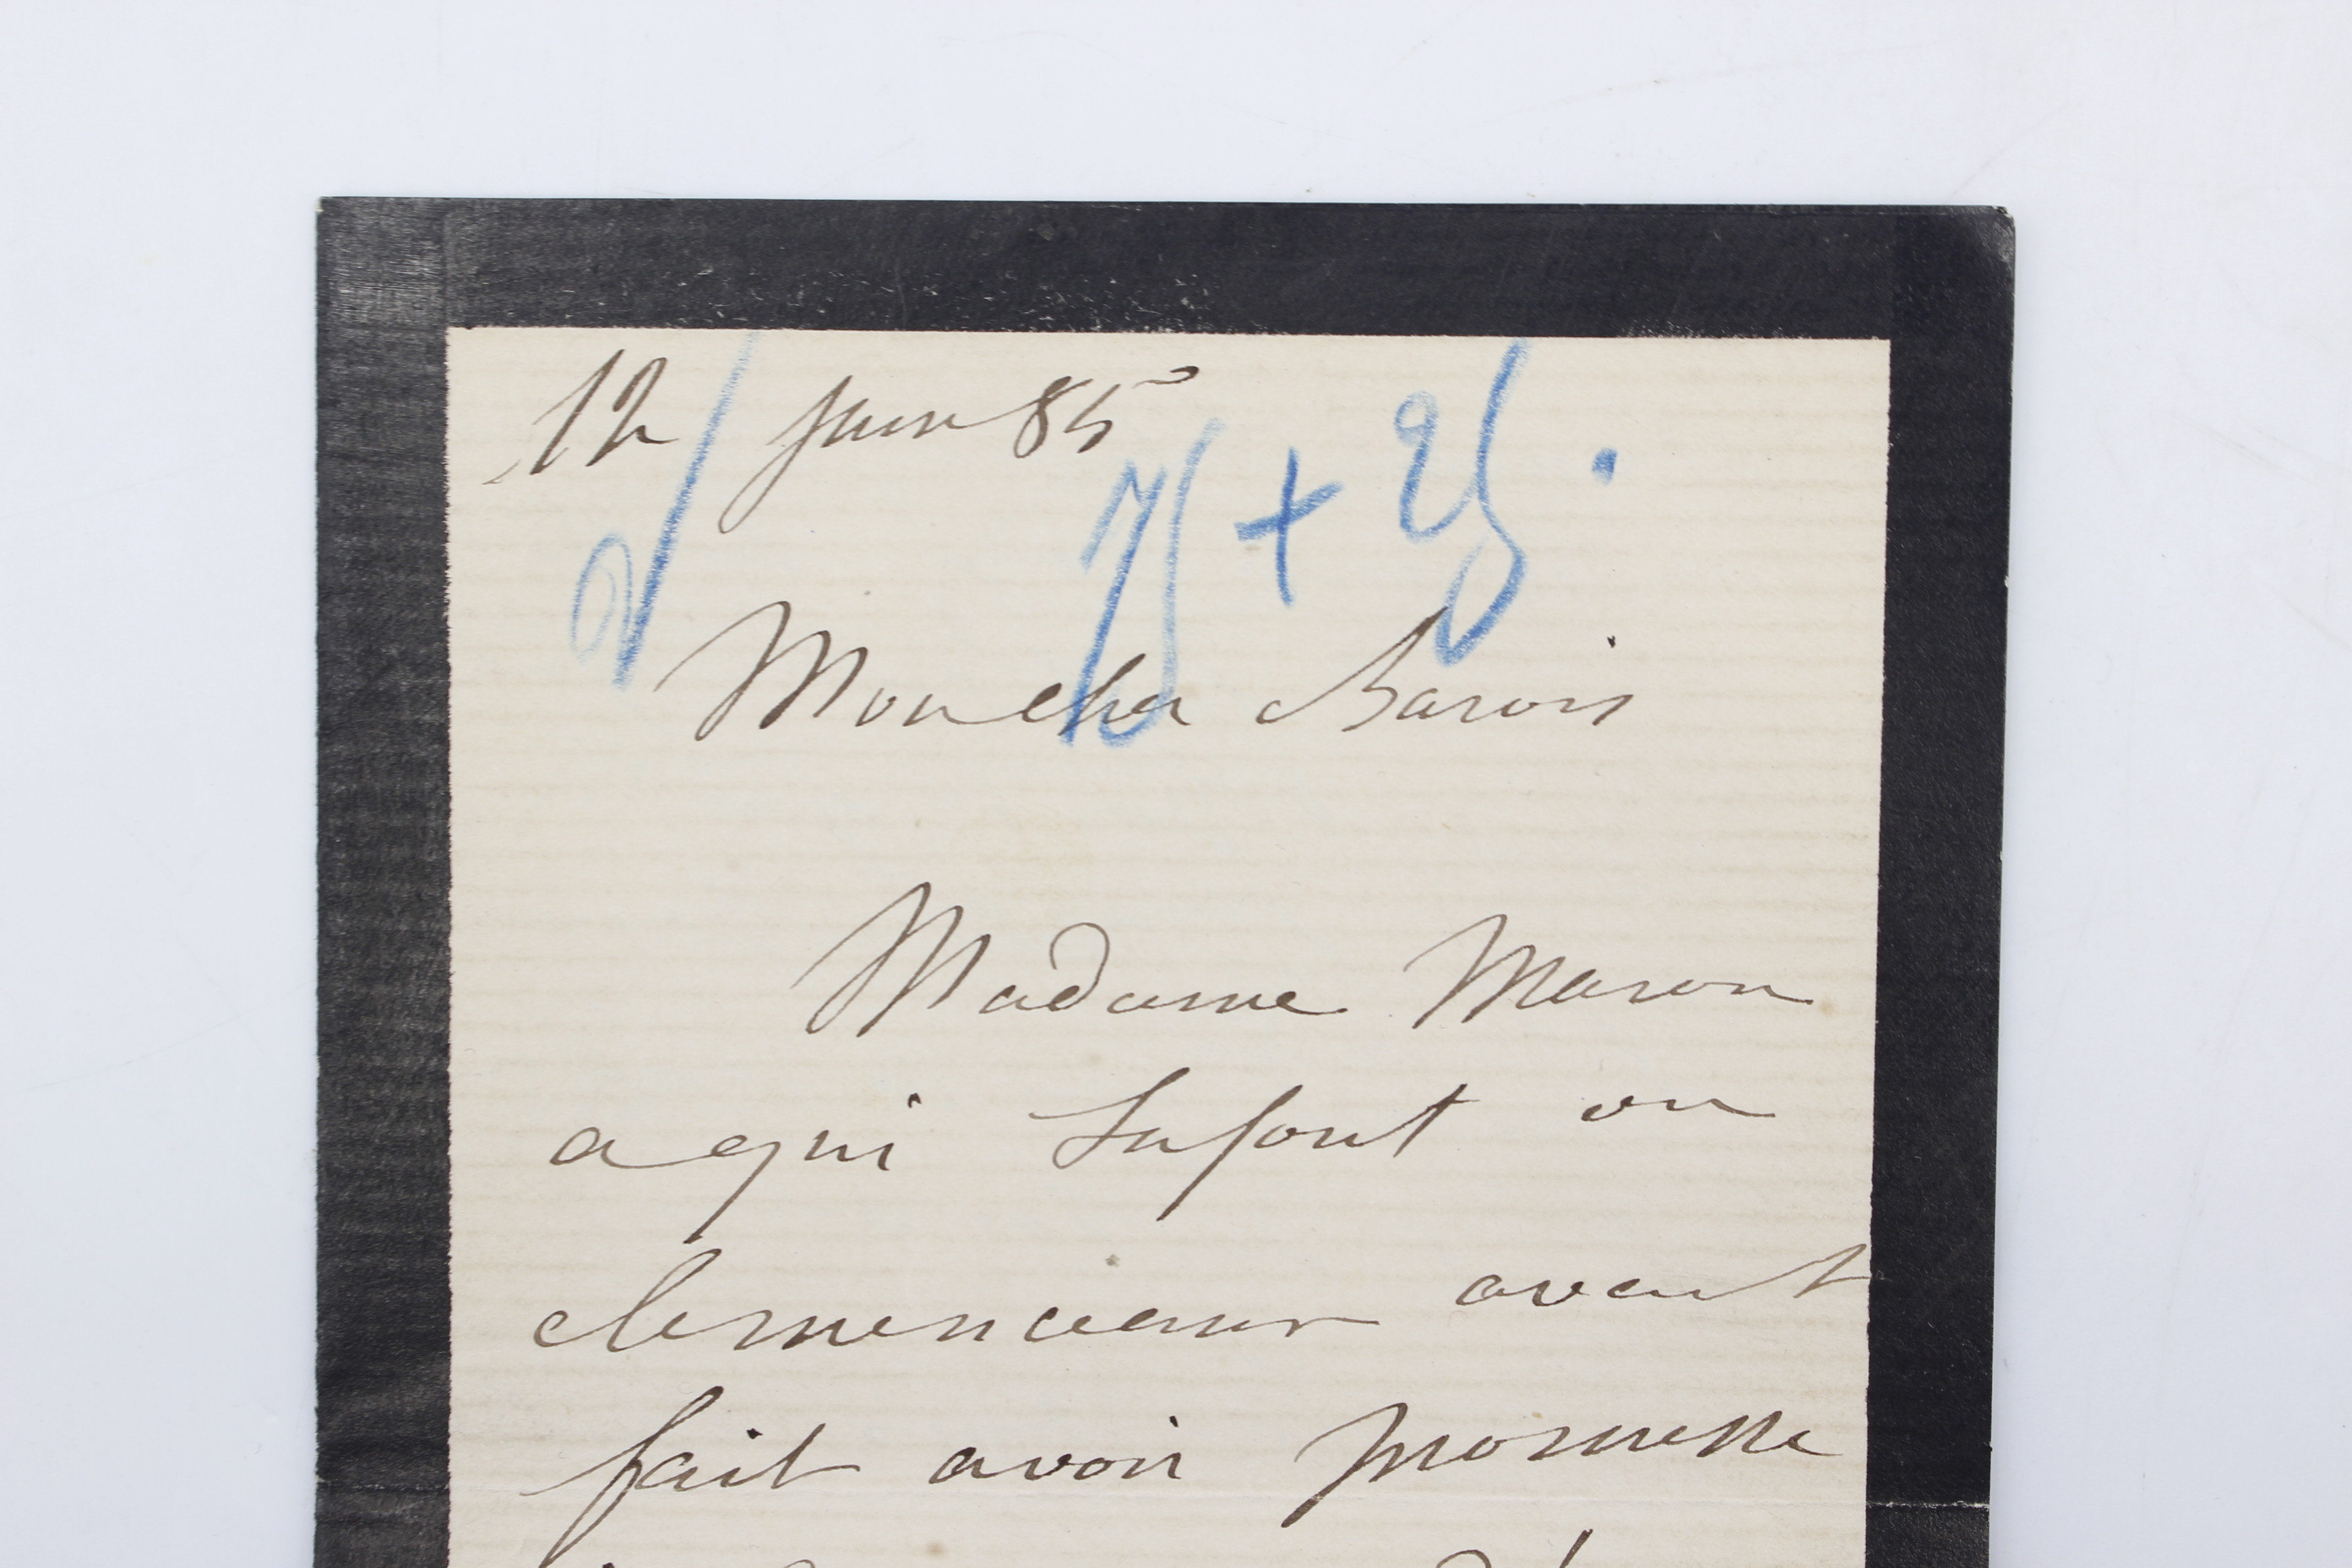 12 juin 85
75 + 25.
Mon cher Barois
Madame Mason
a qui Lafont ou
clemenceau avait
fait avoir promesse